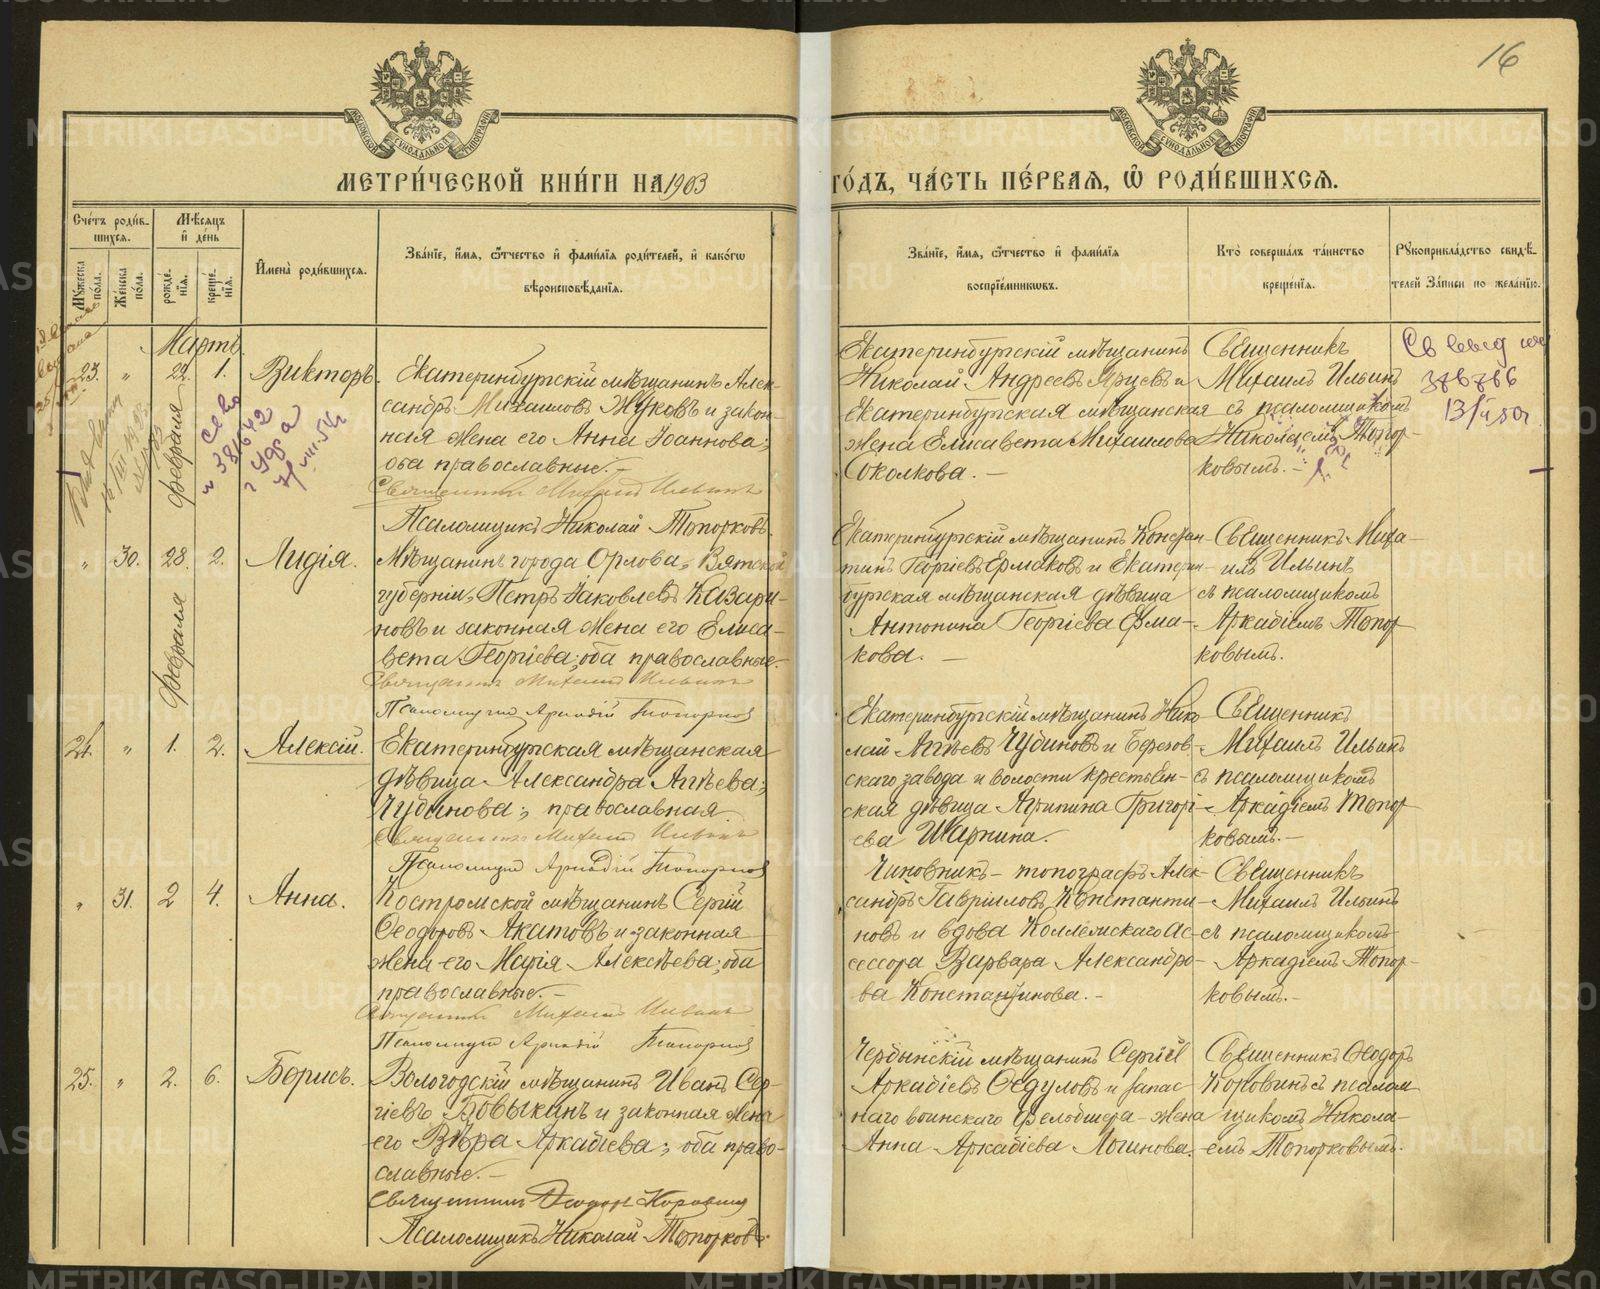 16
МЕТРИ́ЧЕСКОЙ КНИ́ГИ НА 1903
ГО́ДЪ, ЧА́СТЬ ПЕ́РВАЯ, Ѡ РОДИ́ВШИХСЯ.
Сче́тъ роди́в-
шихся.
Мѣ́сяцъ
и҆ де́нь
Мꙋ́жеска
по́ла.
Же́нска
по́ла.
рожде́-
нїя.
креще́-
нїя.
И҆мена̀ роди́вшихся.
Зва́нїе, и҆́мя, ѻ҆́тчество и҆ фами́лїя роди́телей, и҆ како́гѡ
вѣроисповѣ́данїя.
Зва́нїе, и҆́мя, ѻ҆́тчество и҆ фами́лїя
воспрїе́мникѡвъ.
Кто̀ соверша́лъ та́инство
креще́нїя.
Рꙋкоприкла́дство свидѣ́-
телей За́писи по жела́нїю.
Мартъ.
23. " 22. 1. Викторъ.
февраля
Екатеринбургскій мѣщанинъ Алек-
сандръ Михаиловъ Жуковъ и закон-
ная жена его Анна Іоаннова;
оба православные.-
Священникъ Михаилъ Ильинъ
Псаломщикъ Николай Топорковъ.
Екатеринбургскій мѣщанинъ
Николай Андреевъ Ярцевъ и
Екатеринбургская мѣщанская
жена Елисавета Михаилова
Соколкова. -
Священникъ
Михаилъ Ильинъ
съ псаломщикомъ
Николаемъ Топор-
ковымъ.-
386786
" 30. 28. 2. Лидія.
февраля
Мѣщанинъ города Орлова, Вятской
губерніи, Петръ Іаковлевъ Казари-
новъ и законная жена его Елиса-
вета Георгіева; оба православные.-
Священникъ Михаилъ Ильинъ
Псаломщикъ Аркадій Топорковъ
Екатеринбургскій мѣщанинъ Констан-
тинъ Георгіевъ Ермаковъ и Екатерин-
бургская мѣщанская дѣвица
Антонина Георгіева Ерма-
кова. -
Священникъ Миха-
илъ Ильинъ
съ псаломщикомъ
Аркадіемъ Топор-
ковымъ.
24. " 1. 2. Алексій.
Екатеринбургская мѣщанская
дѣвица Александра Агѣева
Чубинова; православная.
Священникъ Михаилъ Ильинъ
Псаломщикъ Аркадій Топорковъ
Екатеринбургскій мѣщанинъ Нико-
лай Агѣевъ Чубиновъ и Березов-
скаго завода и волости крестьян-
ская дѣвица Агрипина Григорі-
ева Шарпина.
Священникъ
Михаилъ Ильинъ
съ псаломщикомъ
Аркадіемъ Топор-
ковымъ.-
" 31. 2 4. Анна.
Костромской мѣщанинъ Сергій
Ѳеодоровъ Акатовъ и законная
жена его Марія Алексѣева; оба
православные.-
Священникъ Михаилъ Ильинъ
Псаломщикъ Аркадій Топорковъ
Чиновникъ - топографъ Алек-
сандръ Гавріиловъ Константи-
новъ и вдова Коллежскаго Ас-
сессора Варвара Александро-
ва Константинова.-
Священникъ
Михаилъ Ильинъ
съ псаломщикомъ
Аркадіемъ Топор-
ковымъ.-
25. " 2. 6. Борисъ.
Вологодскій мѣщанинъ Иванъ Сер-
гіевъ Бовыкинъ и законная жена
его Вѣра Аркадіева; оба право-
славные.-
Священникъ Ѳеодоръ Коровинъ
Псаломщикъ Николай Топорковъ.
Чердынскій мѣщанинъ Сергій
Аркадіевъ Ѳедуловъ и запас-
наго воинскаго фельдшера жена
Анна Аркадіева Логинова.
Священникъ Ѳеодоръ
Коровинъ съ псалом-
щикомъ Никола-
емъ Топорковымъ.
METRIKI.GASO-URAL.RU